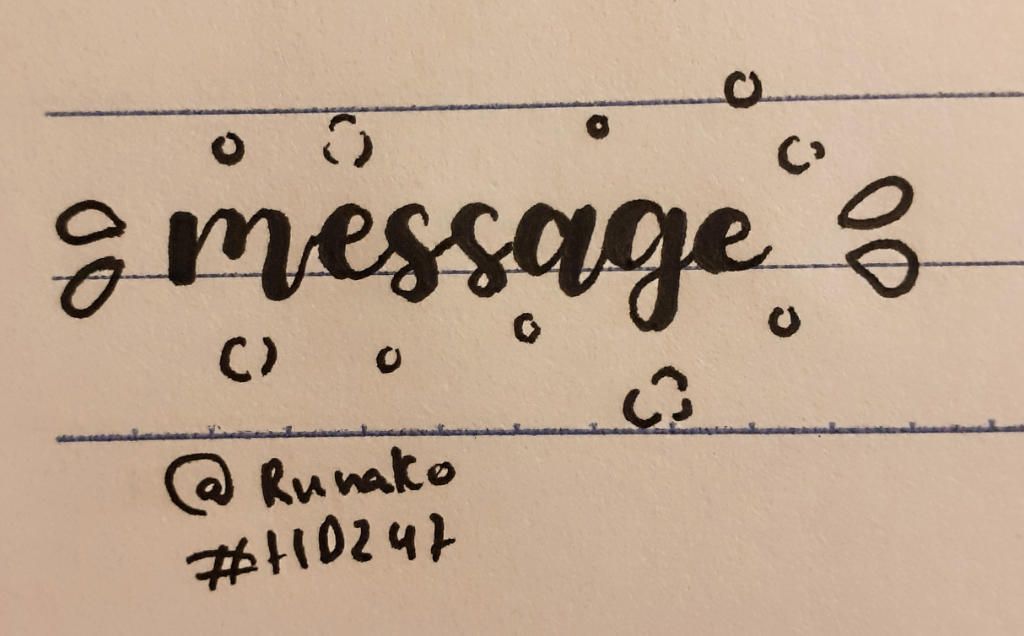 message
@Runako
#HD247